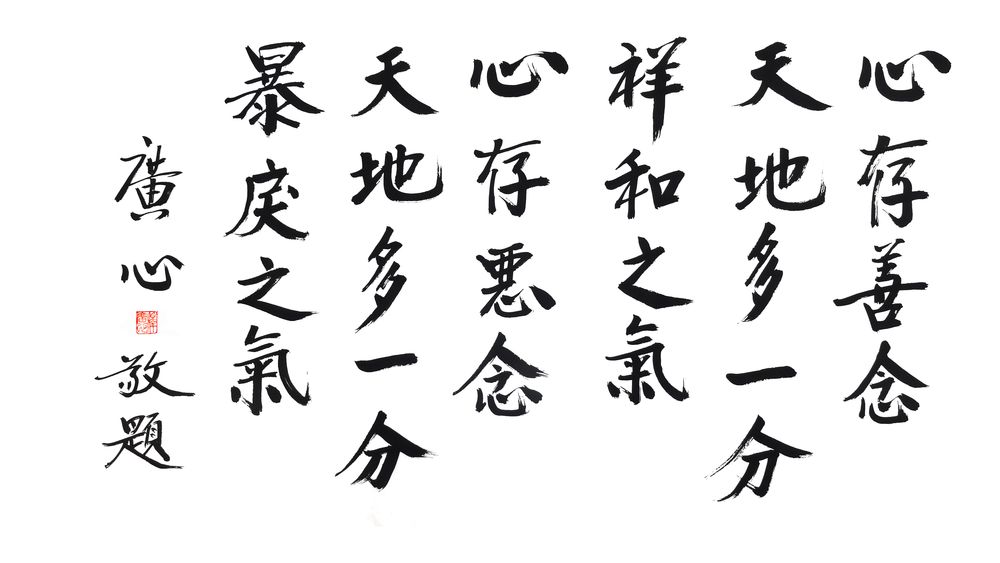 心存善念
天地多一分
祥和之氣
心存悪念
天地多一分
暴戾之氣
廣心敬題